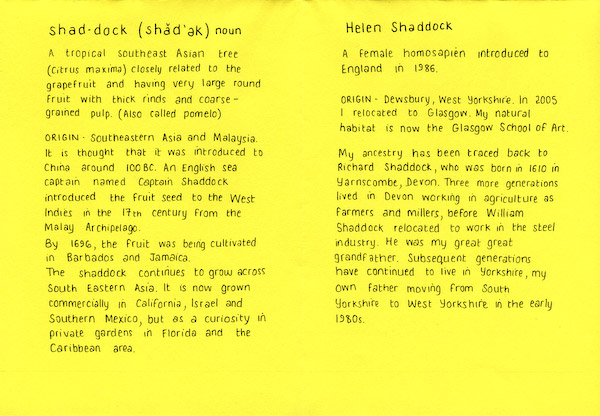 shad·dock (shăd'ək) noun
A tropical southeast Asian tree
(Citrus maxima) closely related to the
grapefruit and having very large round
fruit with thick rinds and coarse-
grained pulp. (Also called pomelo)
ORIGIN - Southeastern Asia and Malaysia.
It is thought that it was introduced to
China around 100BC. An English sea
captain named Captain Shaddock
introduced the fruit seed to the West
Indies in the 17th century from the
Malay Archipelago.
By 1696, the fruit was being cultivated
in Barbados and Jamaica.
The shaddock continues to grow across
South Eastern Asia. It is now grown
commercially in California, Israel and
Southern Mexico, but as a curiosity in
private gardens in Florida and the
Caribbean area.
Helen Shaddock
A female homosapien introduced to
England in 1986.
ORIGIN - Dewsbury, West Yorkshire. In 2005
I relocated to Glasgow. My natural
habitat is now the Glasgow School of Art.
My ancestry has been traced back to
Richard Shaddock, who was born in 1610 in
Yarnscombe, Devon. Three more generations
lived in Devon working in agriculture as
farmers and millers, before William
Shaddock relocated to work in the steel
industry. He was my great great
grandfather. Subsequent generations
have continued to live in Yorkshire, my
own father moving from South
Yorkshire to West Yorkshire in the early
1980s.